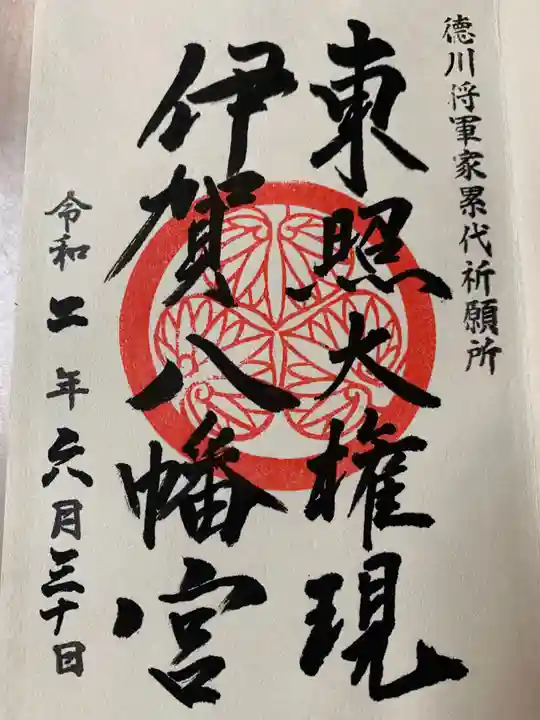 德川将軍家累代祈願所
東照大権現
伊賀八幡宮
令和二年六月三十日